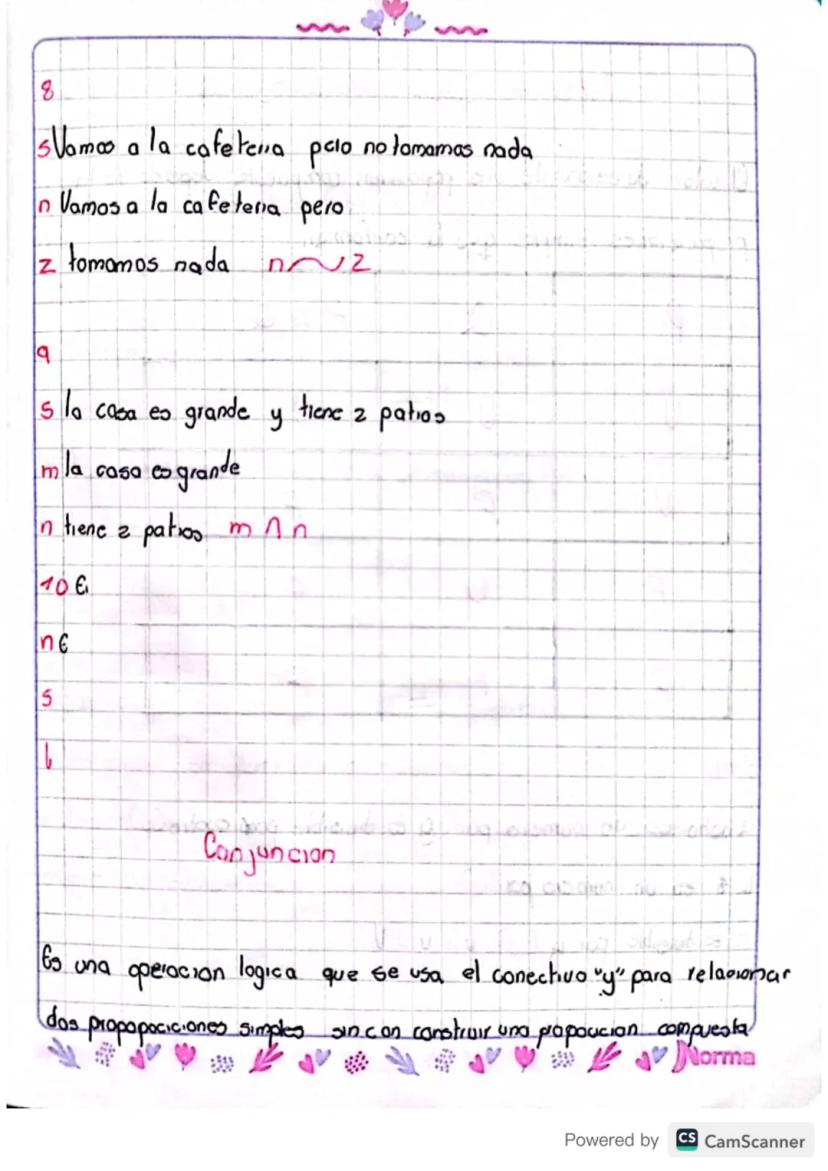 8
s Vamos a la cafeteria pero no tomamos nada
n Vamos a la cafeteria pero
z tomamos nada n ~ z
9
s la casa es grande y tiene 2 patios
m la casa es grande
n tiene 2 patios m ∩ n
10 €
n €
s
Conjuncion
Es una operacion logica que se usa el conectivo "y" para relacionar
dos propopociciones simples con construir una compuesta
Norma
Powered by CS CamScanner